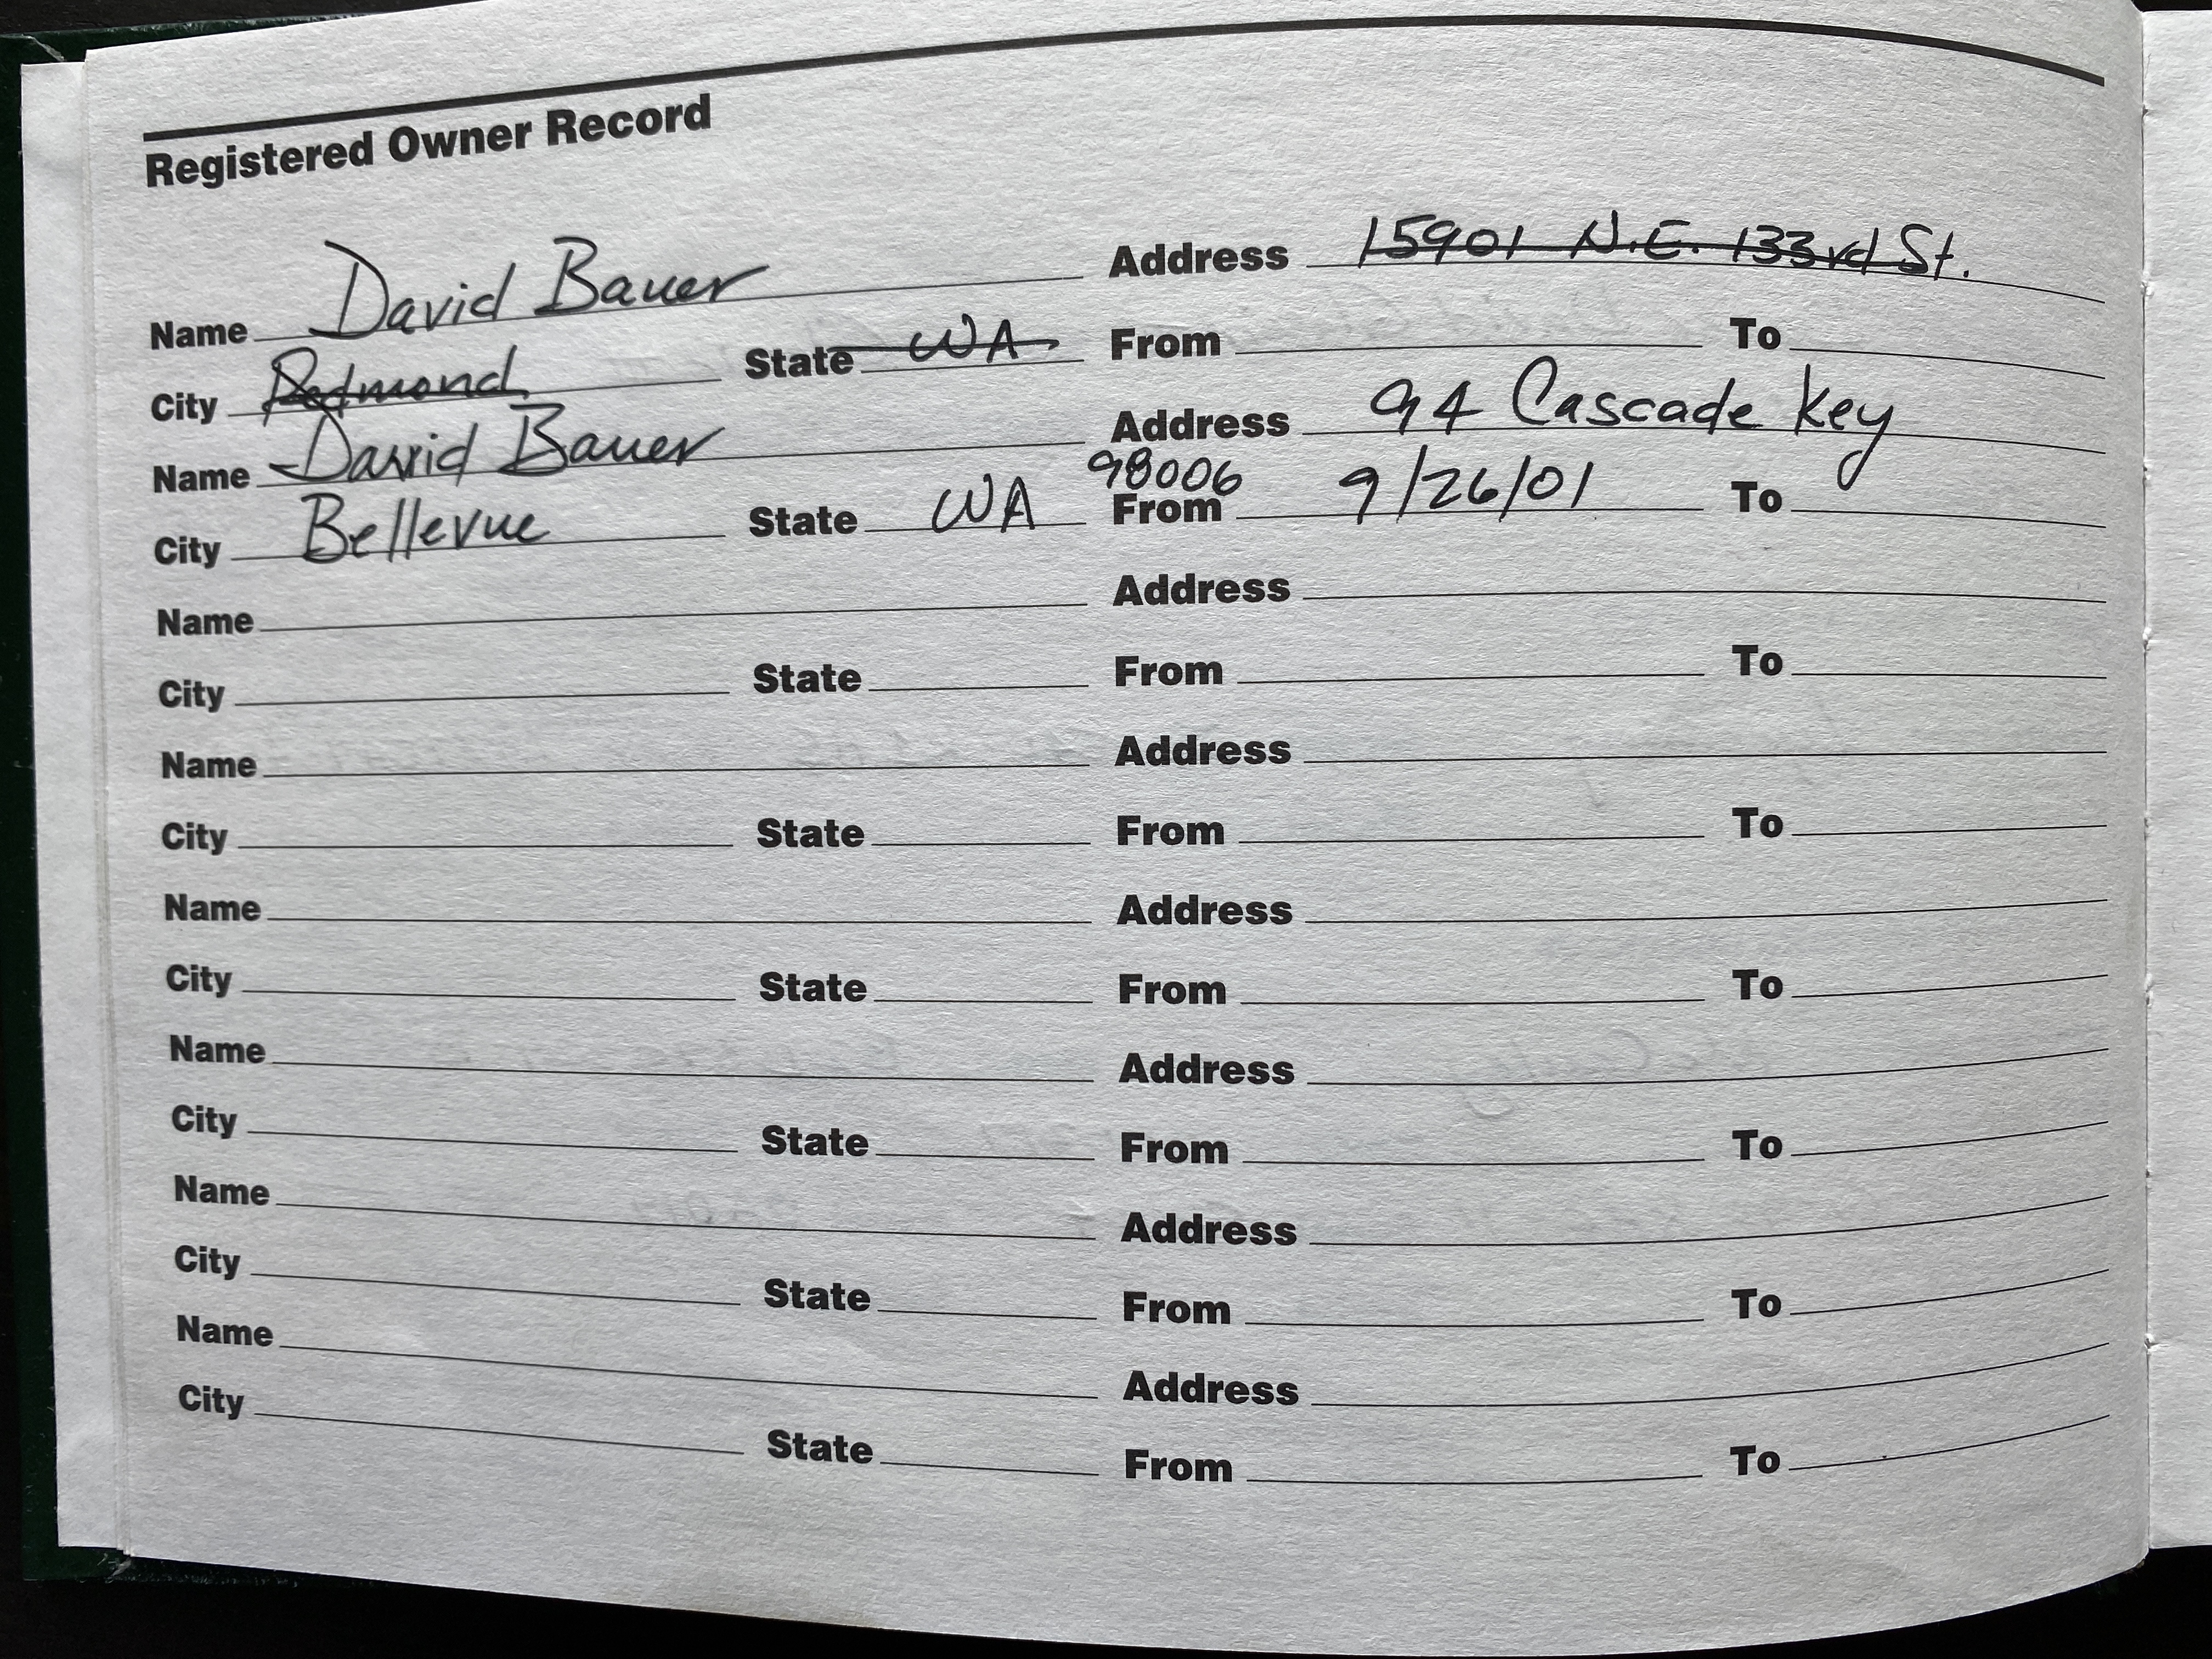 Registered Owner Record
Name David Bauer Address 15901 N.E. 133rd St.
City Redmond State WA From To
Name David Bauer Address 94 Cascade Key
City Bellevue State WA 98006 From 9/26/01 To
Name Address
City State From To
Name Address
City State From To
Name Address
City State From To
Name Address
City State From To
Name Address
City State From To
Name Address
City State From To